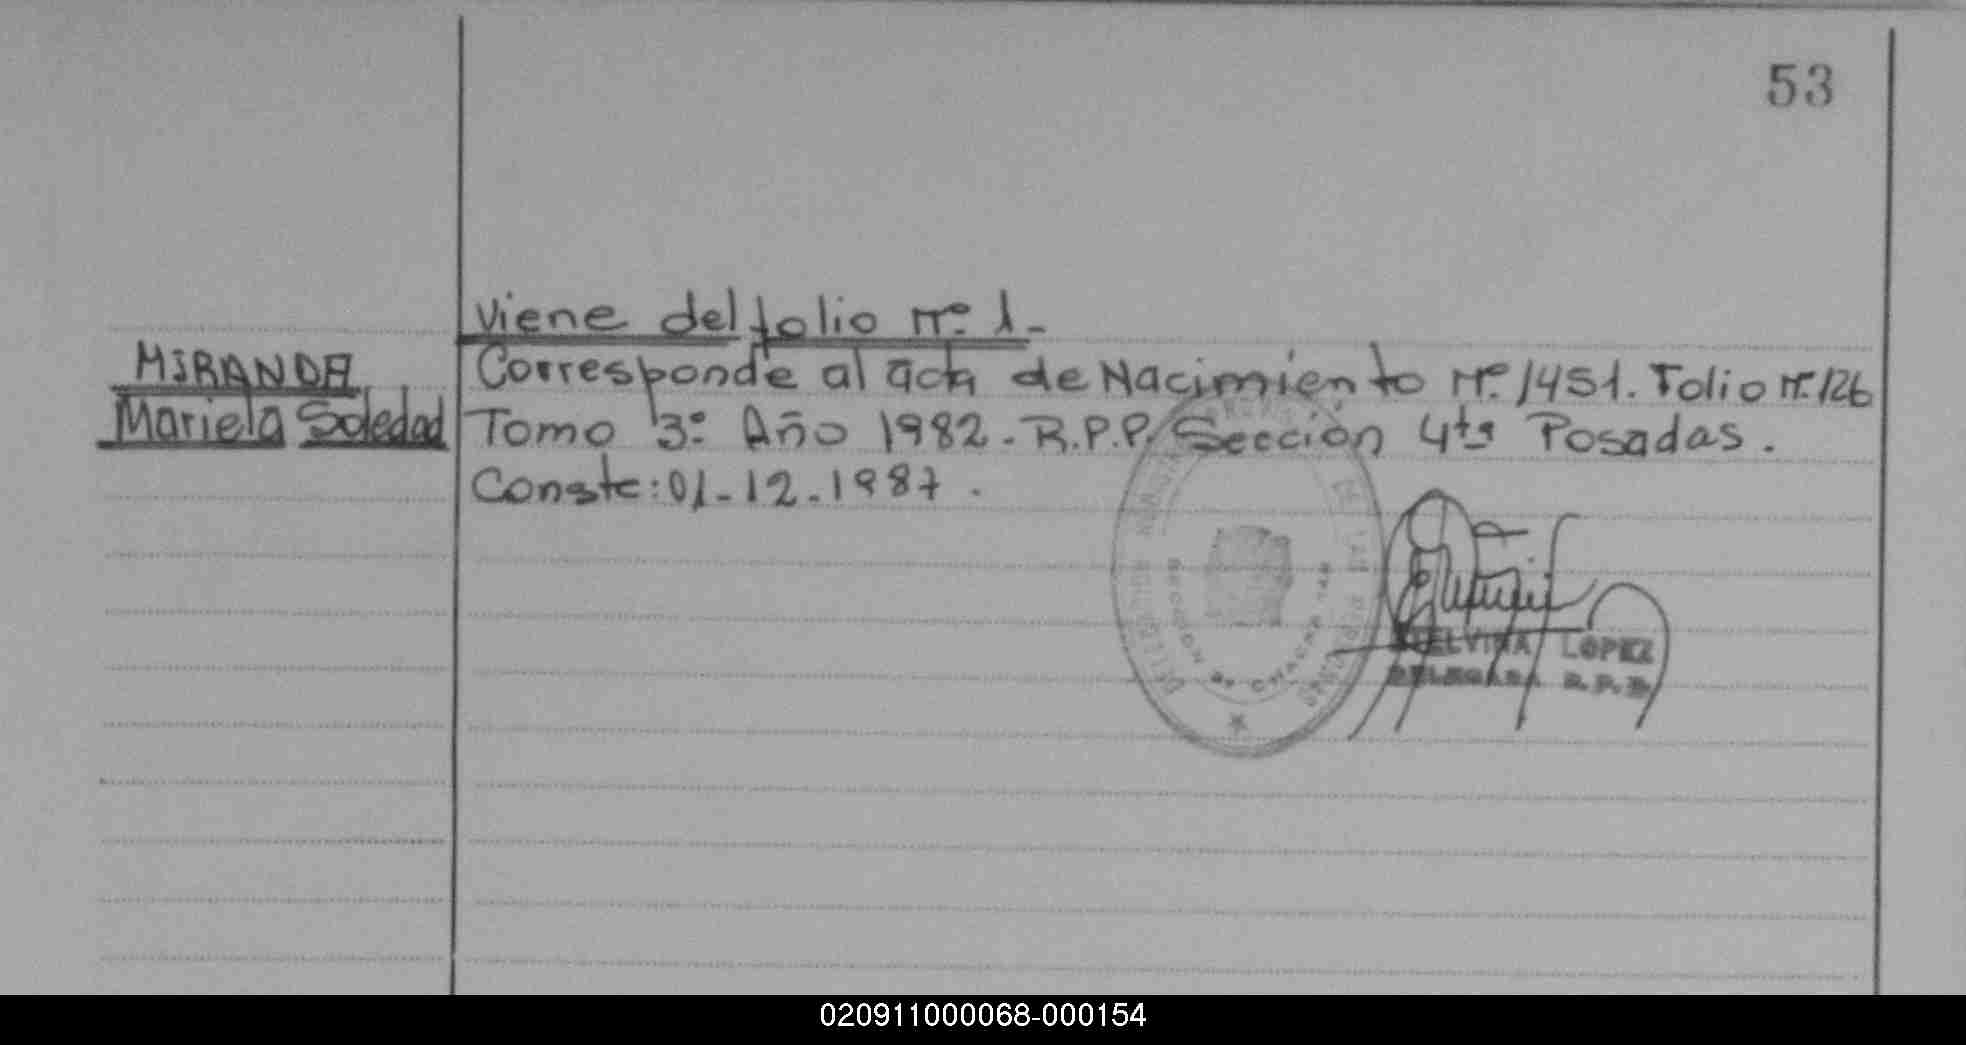 53
viene del folio Nº 1-
MIRANDA
Mariela Soledad
Corresponde al acta de Nacimiento Nº 1451. Folio Nº 126
Tomo 3º Año 1982. R.P.P. Sección 4ta Posadas.
Conste: 01-12-1987.
SECCION
DE LAS PERSONAS
ELVINA LOPEZ
DELEGADA R.P.P.
020911000068-000154